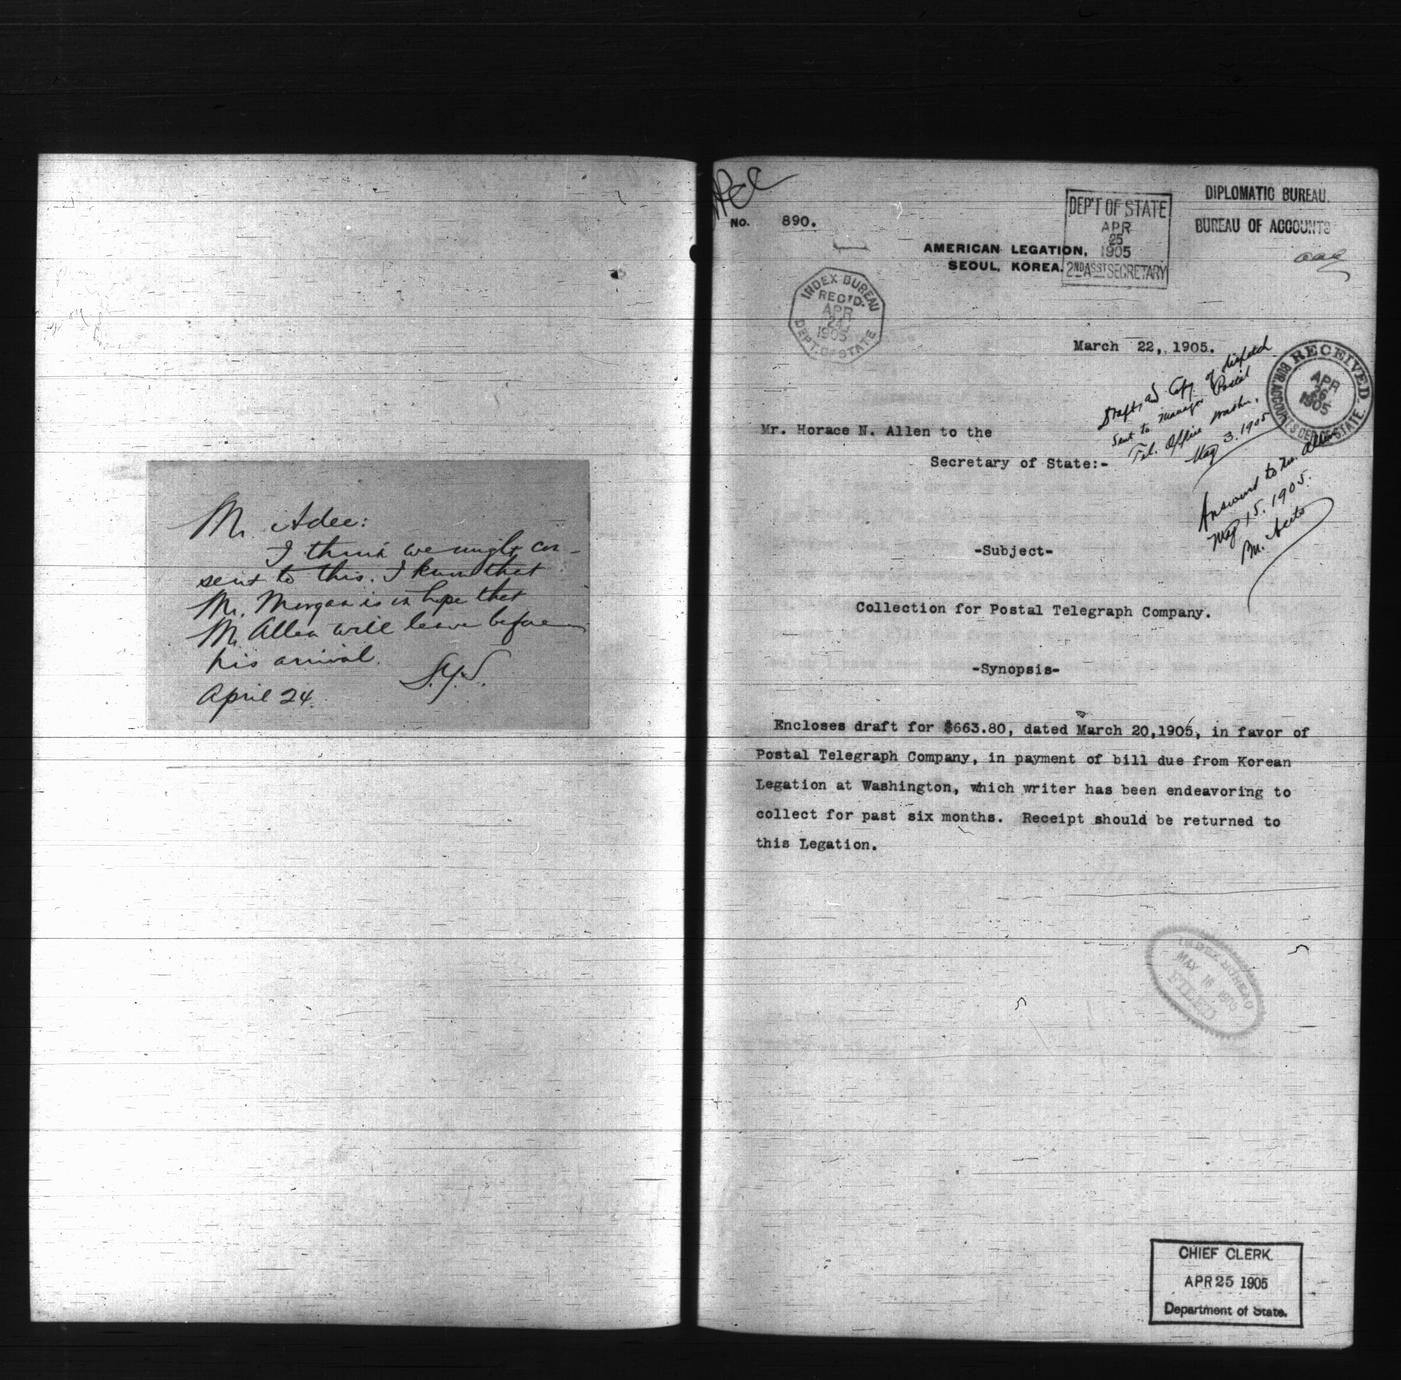 Mr. Adee:
I think we might con-
sent to this. I know that
Mr. Morgan is in hope that
Mr. Allen will leave before
his arrival.
April 24.
No. 890.
AMERICAN LEGATION,
SEOUL, KOREA.
DEP'T OF STATE
APR
25
1905
2ND ASST SECRETARY
DIPLOMATIC BUREAU.
BUREAU OF ACCOUNTS
INDEX BUREAU
REC'D.
APR
24
1905
DEPT. OF STATE
March 22, 1905.
RECEIVED.
APR
26
1905
BUR. ACCOUNTS DEPT. OF STATE.
Draft, and Copy of dispatch
sent to manager Postal
Tel. Office Washn.
May 3. 1905
Answered to Mr. Allen
May 15. 1905.
Mr. Horace N. Allen to the
Secretary of State:-
-Subject-
Collection for Postal Telegraph Company.
-Synopsis-
Encloses draft for $663.80, dated March 20,1905, in favor of
Postal Telegraph Company, in payment of bill due from Korean
Legation at Washington, which writer has been endeavoring to
collect for past six months. Receipt should be returned to
this Legation.
INDEX BUREAU
MAY 16 1905
FILED
CHIEF CLERK.
APR 25 1905
Department of State.